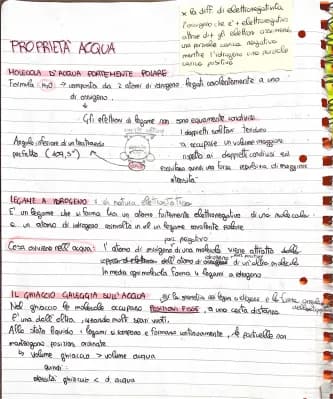 x la diff. di elettronegatività
l'ossigeno che e' + elettronegativo
attrae di + gli elettroni assumendo
una parziale carica negativa
mentre l'idrogeno una parziale
carica positiva
PROPRIETÀ ACQUA
MOLECOLA D'ACQUA FORTEMENTE POLARE
Formula H₂O → composta da 2 atomi di idrogeno legati covalentemente a uno
di ossigeno.
↓
Gli elettroni di legame non sono equamente condivisi
I doppietti solitari tendono
Angolo inferiore di un tetraedro
a occupare un volume maggiore
perfetto (109,5°)
rispetto ai doppietti condivisi ed
esercitano quindi una forza repulsiva di maggiore
intensità
LEGAME A IDROGENO : di natura elettrostatica
E' un legame che si forma tra un atomo fortemente elettronegativo di una molecola
e un atomo di idrogeno coinvolto in un legame covalente polare
parz. negativo
Cosa avviene nell'acqua: l'atomo di ossigeno di una molecola viene attratto
dell'atomo di idrogeno di un'altra molecola
In media ogni molecola forma 4 legami a idrogeno
IL GHIACCIO GALLEGGIA SULL'ACQUA
Nel ghiaccio le molecole occupano POSIZIONI FISSE, a una certa distanza
l'una dall'altra, creando molti spazi vuoti.
Allo stato liquido i legami si rompono e formano continuamente, le particelle non
mantengono posizioni ordinate.
↳ volume ghiaccio > volume acqua
quindi:
densità ghiaccio < d. acqua